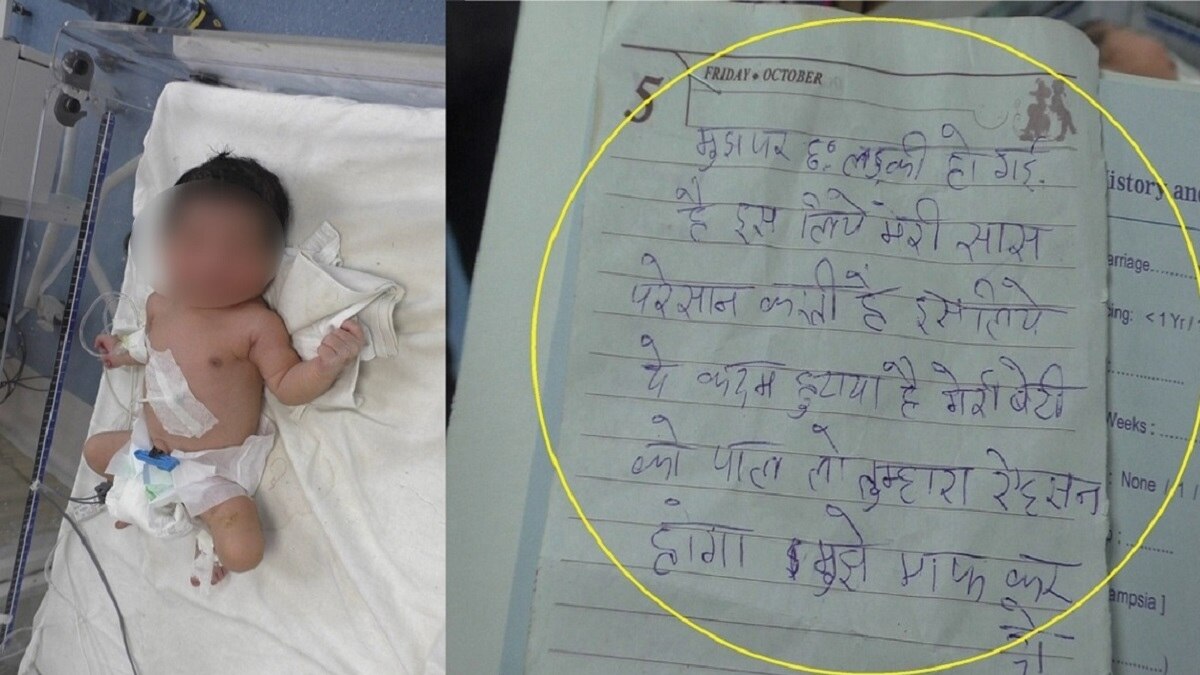 5
FRIDAY • OCTOBER
मुझ पर छः लड़की हो गई.
है इस लिये मेरी सास
परेसान करती है इसलिये
ये कदम हुटाया है मेरी बेटी
को पाल लो तुम्हारा ऐहसान
होगा मुझे माफ कर
दो
istory and
arriage..........
ing: < 1 Yr /
Weeks :
: None / 1 /
ampsia ]